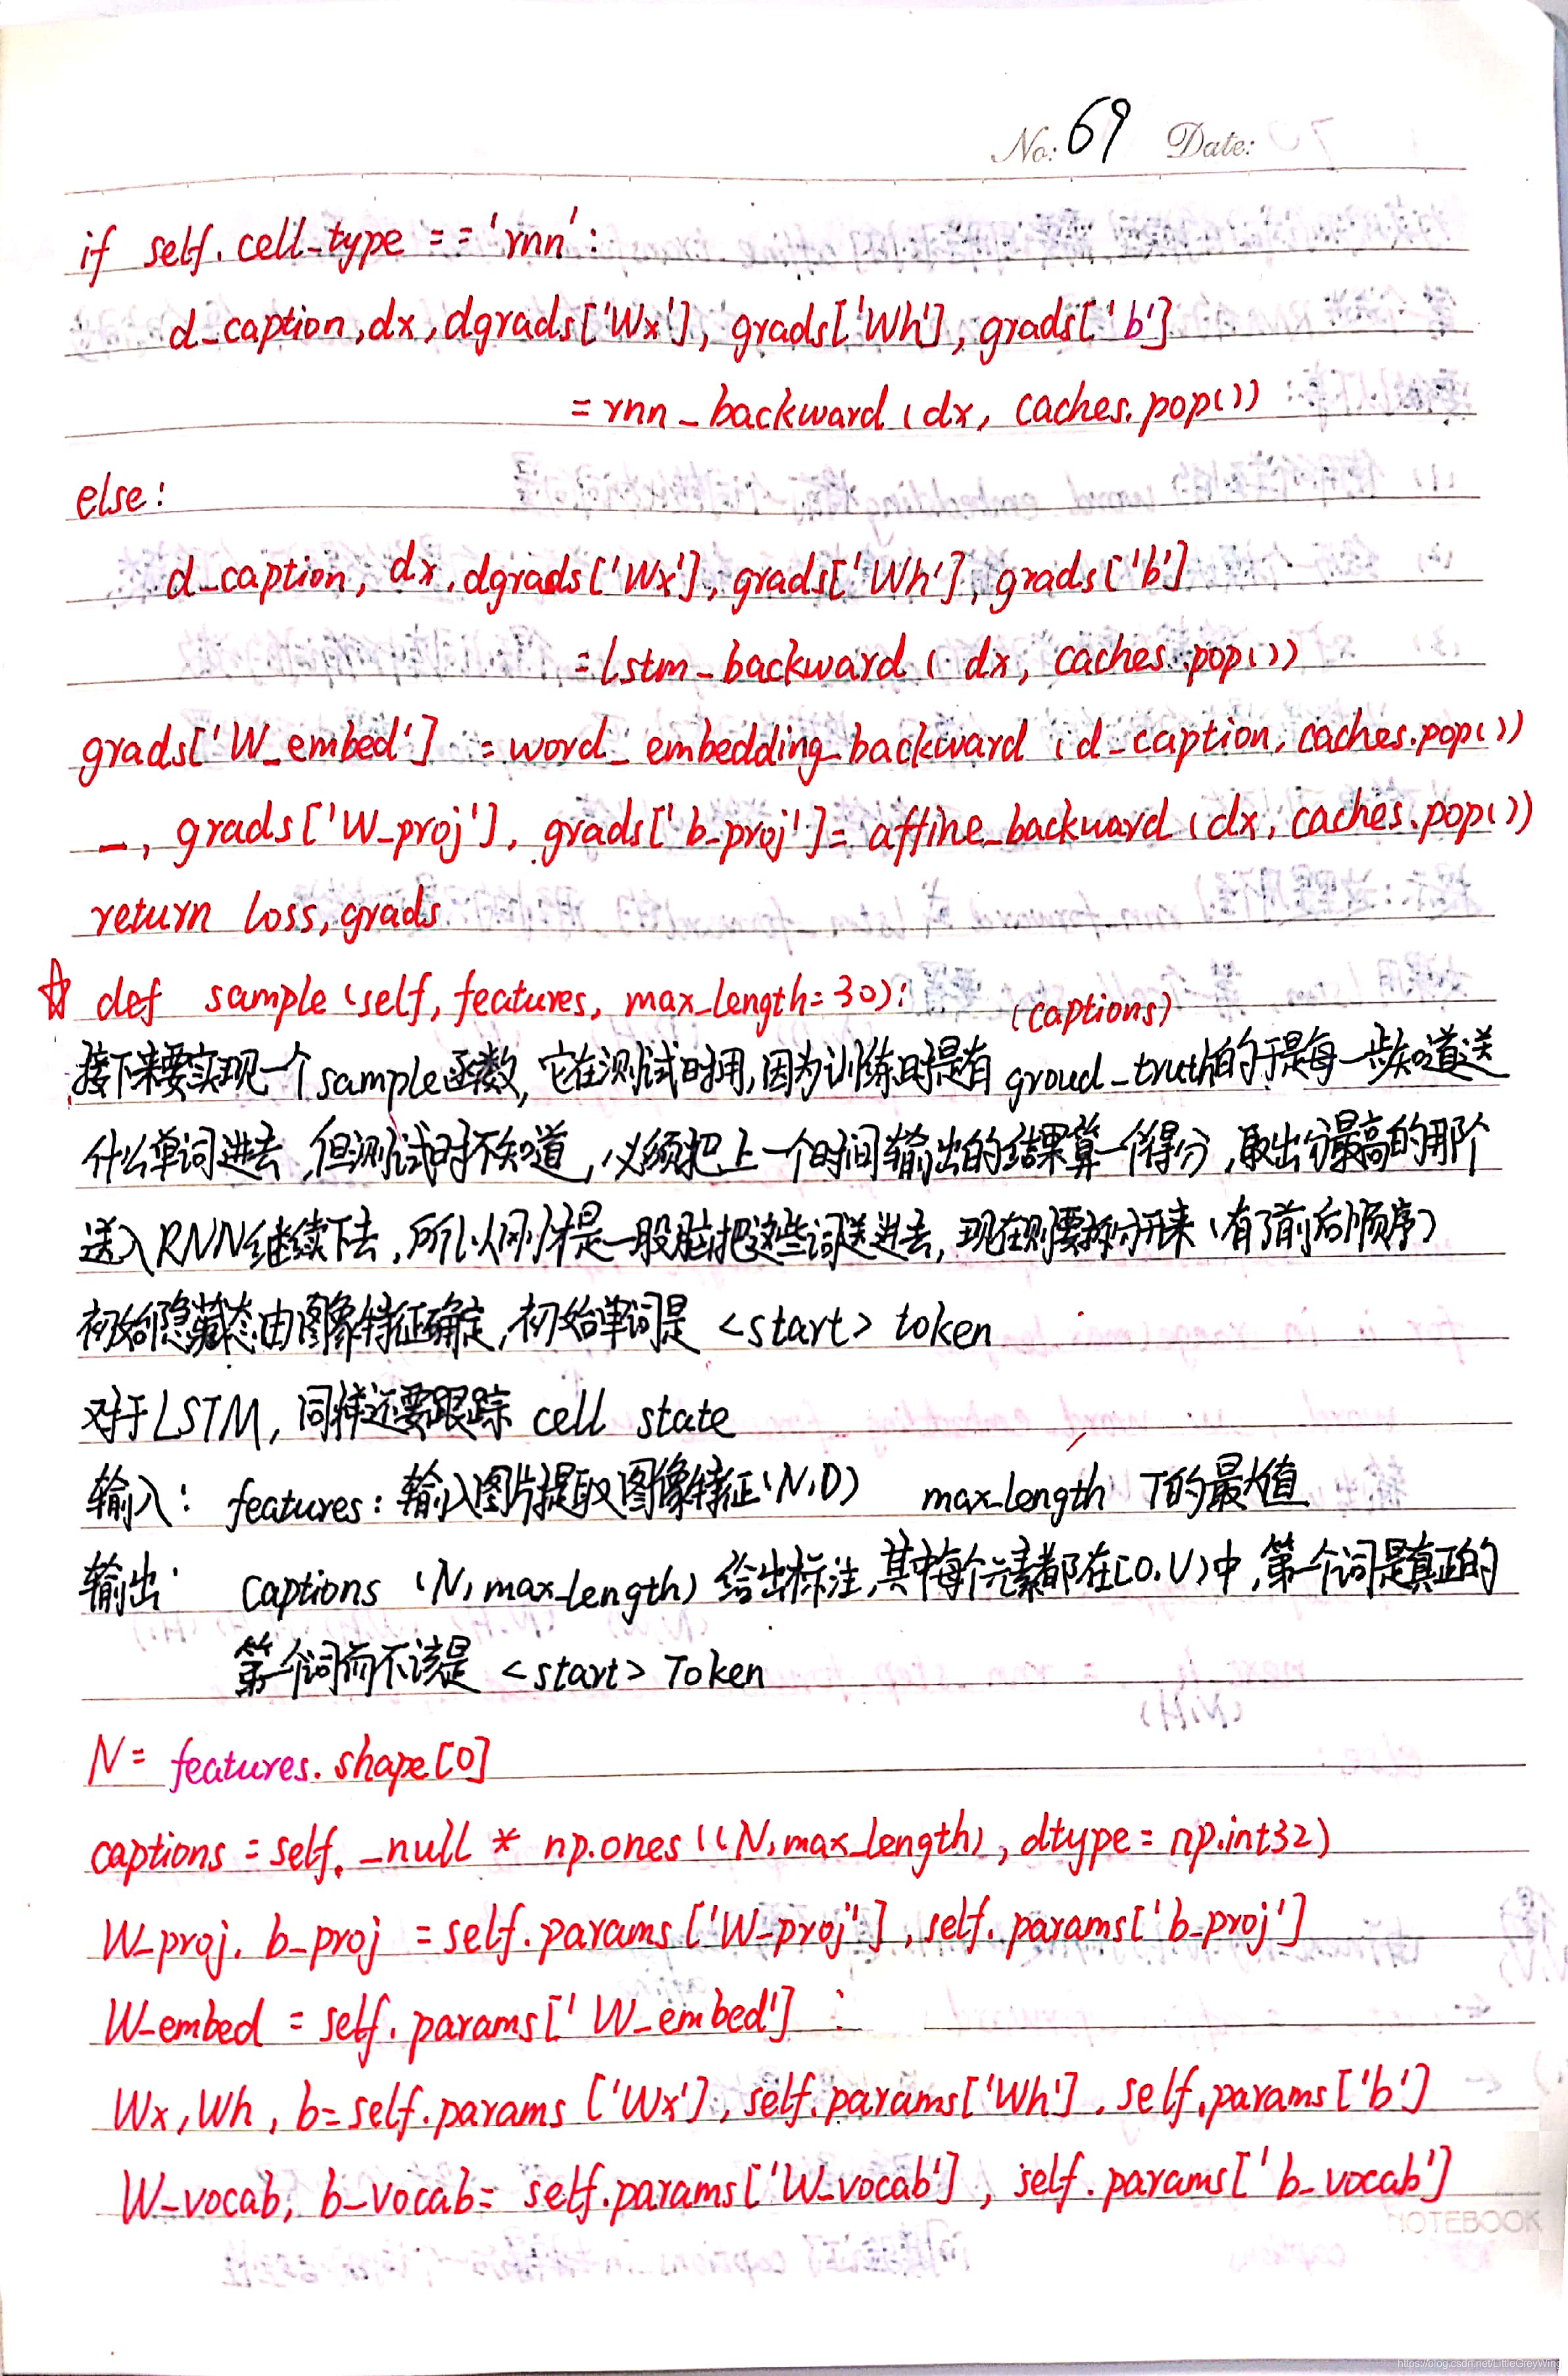 No: 69 Date:
if self.cell_type == 'rnn':
d_caption, dx, dgrads['Wx'], grads['Wh'], grads['b']
= rnn_backward(dx, caches.pop())
else:
d_caption, dx, dgrads['Wx'], grads['Wh'], grads['b']
= lstm_backward( dx, caches.pop())
grads['W_embed'] = word_embedding_backward(d_caption, caches.pop())
_, grads['W_proj'], grads['b_proj'] = affine_backward(dx, caches.pop())
return loss, grads
☆ def sample(self, features, max_length=30):
(captions)
接下来要实现一个sample函数,它在测试时用,因为训练时是有groud_truth的于是每一步知道送
什么单词进去,但测试时不知道,必须把上一个时间输出的结果算一个得分,取出分最高的那个
送入RNN继续下去,所以刚才是一股脑把这些词送进去,现在则要拆分开来(有了前后顺序)
初始隐藏态由图像特征确定,初始单词是 <start> token
对于LSTM,同样还要跟踪 cell state
输入: features: 输入图片提取图像特征(N,D) max_length T的最大值
输出: captions (N, max_length) 给出标注,其中每个元素都在[0,V)中,第一个词是真正的
第一个词而不该是 <start> Token
N = features.shape[0]
captions = self._null * np.ones((N, max_length), dtype = np.int32)
W_proj, b_proj = self.params['W_proj'], self.params['b_proj']
W_embed = self.params['W_embed']
Wx, Wh, b = self.params['Wx'], self.params['Wh'], self.params['b']
W_vocab, b_vocab = self.params['W_vocab'], self.params['b_vocab']
NOTEBOOK
https://blog.csdn.net/LittleGreyWing